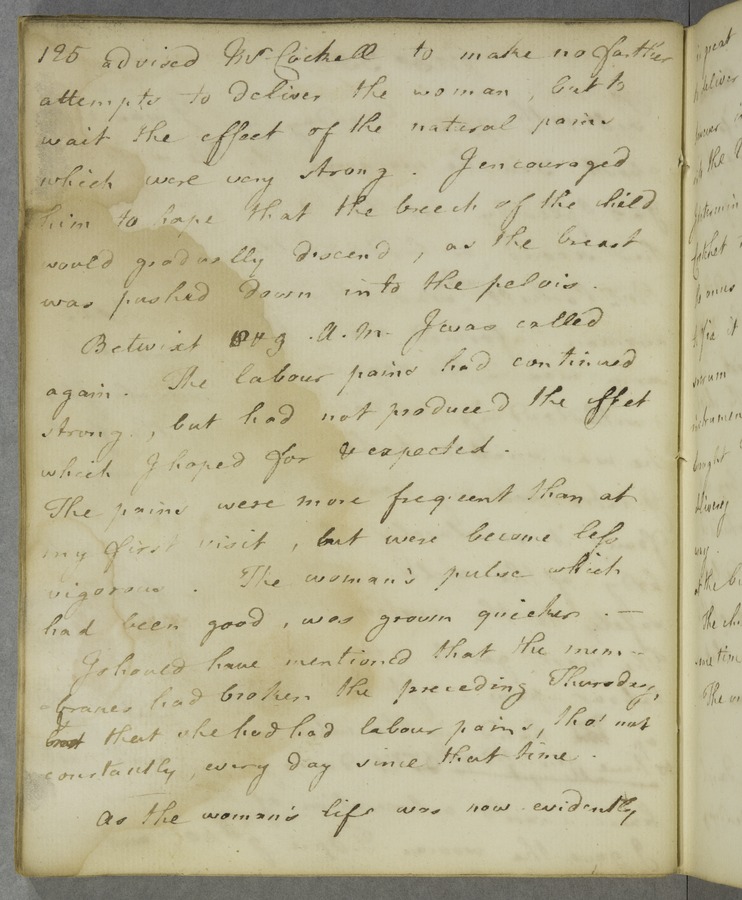 125 advised Mr. Cockell to make no farther
attempts to deliver the woman, but to
wait the effect of the natural pains
which were very strong. I encouraged
him to hope that the breech of the child
would gradually descend, as the breast
was pushed down into the pelvis.
Betwixt 8 & 9 A.M. I was called
again. The labour pains had continued
strong, but had not produced the effet
which I hoped for & expected.
The pains were more frequent than at
my first visit, but were become less
vigorous. The woman's pulse which
had been good, was grown quicker. —
I should have mentioned that the mem-
-branes had broken the preceding Thursday,
& that she had had labour pains, tho' not
constantly, every day since that time.
As the woman's life was now evidently